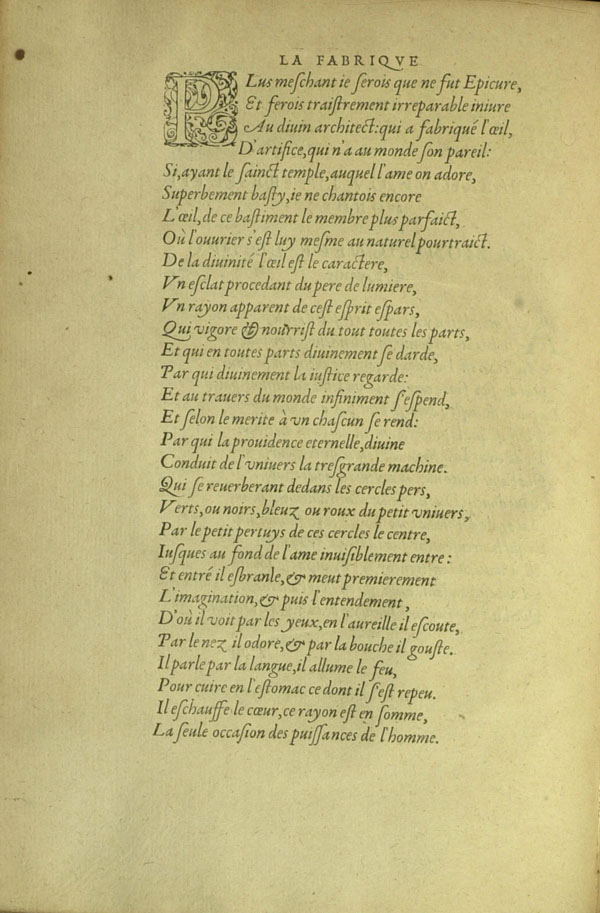 LA FABRIQVE
PLus meſchant ie ſerois que ne fut Epicure,
Et ferois traiſtrement irreparable iniure
Au diuin architect: qui a fabriqué l'œil,
D'artifice, qui n'a au monde ſon pareil:
Si, ayant le ſainct temple, auquel l'ame on adore,
Superbement baſty, ie ne chantois encore
L'œil, de ce baſtiment le membre plus parfaict,
Où l'ouurier s'eſt luy meſme au naturel pourtraict.
De la diuinité l'œil eſt le caractere,
Vn eſclat procedant du pere de lumiere,
Vn rayon apparent de ceſt eſprit eſpars,
Qui vigore & nourriſt du tout toutes les parts,
Et qui en toutes parts diuinement ſe darde,
Par qui diuinement la iuſtice regarde:
Et au trauers du monde infiniment ſ'eſpend,
Et ſelon le merite à vn chaſcun ſe rend:
Par qui la prouidence eternelle, diuine
Conduit de l'vniuers la treſgrande machine.
Qui ſe reuerberant dedans les cercles pers,
Verts, ou noirs, bleuz ou roux du petit vniuers,
Par le petit pertuys de ces cercles le centre,
Iuſques au fond de l'ame inuiſiblement entre:
Et entré il eſbranle, & meut premierement
L'imagination, & puis l'entendement,
D'où il voit par les yeux, en l'aureille il eſcoute,
Par le nez il odore, & par la bouche il gouſte.
Il parle par la langue, il allume le feu,
Pour cuire en l'eſtomac ce dont il ſ'eſt repeu.
Il eſchauffe le cœur, ce rayon eſt en ſomme,
La ſeule occaſion des puiſſances de l'homme.